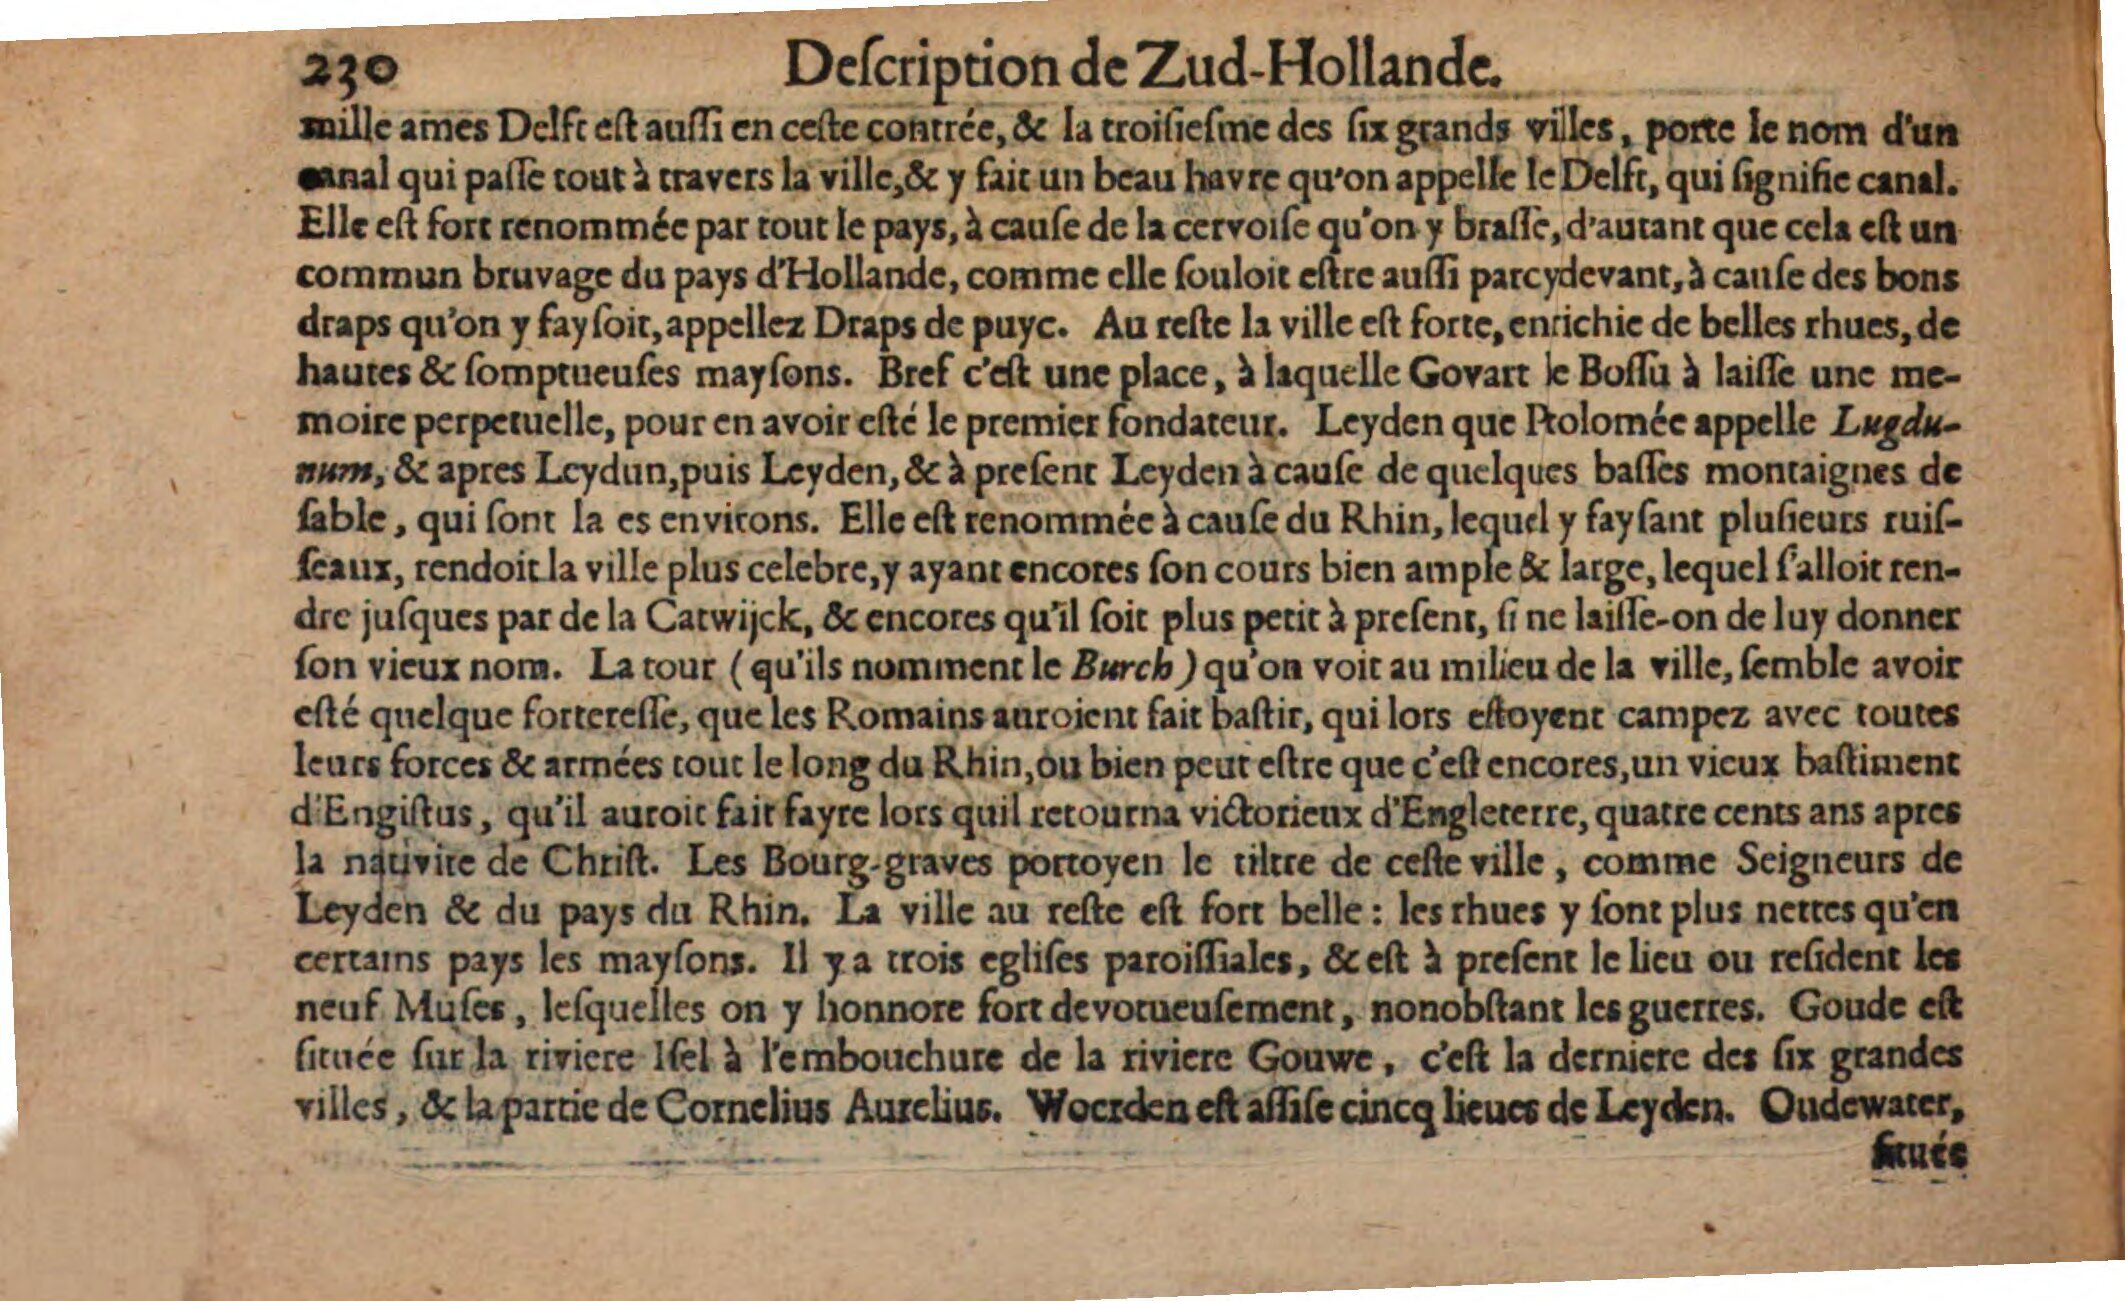 230 Deſcription de Zud-Hollande.
mille ames Delft eſt auſſi en ceſte contrée, & la troiſieſme des ſix grands villes, porte le nom d'un
canal qui paſſe tout à travers la ville, & y fait un beau havre qu'on appelle le Delft, qui ſignifie canal.
Elle eſt fort renommée par tout le pays, à cauſe de la cervoiſe qu'on y braſſe, d'autant que cela eſt un
commun bruvage du pays d'Hollande, comme elle ſouloit eſtre auſſi parcydevant, à cauſe des bons
draps qu'on y fayſoit, appellez Draps de puyc. Au reſte la ville eſt forte, enrichie de belles rhues, de
hautes & ſomptueuſes mayſons. Bref c'eſt une place, à laquelle Govart le Boſſu à laiſſe une me-
moire perpetuelle, pour en avoir eſté le premier fondateur. Leyden que Ptolomée appelle Lugdu-
num, & apres Leydun, puis Leyden, & à preſent Leyden à cauſe de quelques baſſes montaignes de
ſable, qui ſont la es environs. Elle eſt renommée à cauſe du Rhin, lequel y fayſant pluſieurs ruiſ-
ſeaux, rendoit la ville plus celebre, y ayant encores ſon cours bien ample & large, lequel ſ'alloit ren-
dre juſques par de la Catwijck, & encores qu'il ſoit plus petit à preſent, ſi ne laiſſe-on de luy donner
ſon vieux nom. La tour (qu'ils nomment le Burch) qu'on voit au milieu de la ville, ſemble avoir
eſté quelque fortereſſe, que les Romains auroient fait baſtir, qui lors eſtoyent campez avec toutes
leurs forces & armées tout le long du Rhin, ou bien peut eſtre que c'eſt encores, un vieux baſtiment
d'Engiſtus, qu'il auroit fait fayre lors quil retourna victorieux d'Engleterre, quatre cents ans apres
la nativite de Chriſt. Les Bourg-graves portoyen le tiltre de ceſte ville, comme Seigneurs de
Leyden & du pays du Rhin. La ville au reſte eſt fort belle: les rhues y ſont plus nettes qu'en
certains pays les mayſons. Il y a trois egliſes paroiſſiales, & eſt à preſent le lieu ou reſident les
neuf Muſes, leſquelles on y honnore fort devotueuſement, nonobſtant les guerres. Goude eſt
ſituée ſur la riviere Iſel à l'embouchure de la riviere Gouwe, c'eſt la derniere des ſix grandes
villes, & la partie de Cornelius Aurelius. Woerden eſt aſſiſe cincq lieues de Leyden. Oudewater,
ſituée